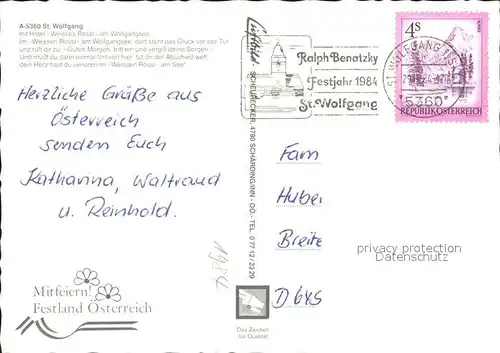 A-5360 St. Wolfgang
mit Hotel »Weisses Rössl« am Wolfgangsee
Im »Weissen Rössl« am Wolfgangsee, dort steht das Glück vor der Tür
und ruft dir zu: »Guten Morgen, tritt ein und vergiß deine Sorgen.«
Und mußt du dann einmal fort von hier, tut dir der Abschied weh
dein Herz hast du verloren im »Weissen Rössl« am See!
Herzliche Grüße aus
Österreich
senden Euch
Katharina, Waltraud
u. Reinhold.
Mitfeiern!
Festland Österreich
Luftbild
SCHÄRDING/INN - OÖ. - TEL. 07712/2329
1984
Das Zeichen
für Qualität
Ralph Benatzky
Festjahr 1984
St. Wolfgang
ST. WOLFGANG
5360
4S
REPUBLIK ÖSTERREICH
Fam
Huber
Breite
D 645
privacy protection
Datenschutz